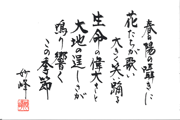 春陽の囁きに
花たちが歌い
大きく笑い踊る
生命の偉大さと
大地の逞しさが
鳴り響く
この季節